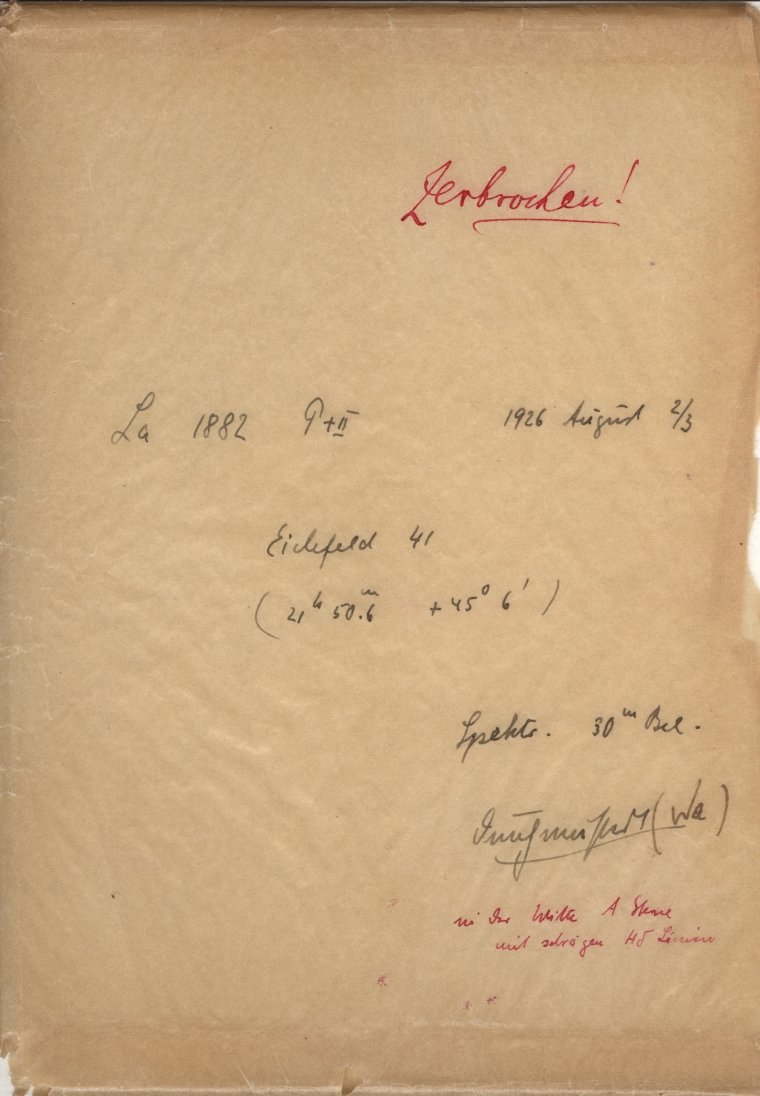 Zerbrochen!
La 1882 P+II 1926 August 2/3
Eichfeld 41
( 21h 50.6m +45° 6' )
Spektr. 30m Bel.
(Wa)
in der Mitte A Sterne
mit schrägen Hδ Linien